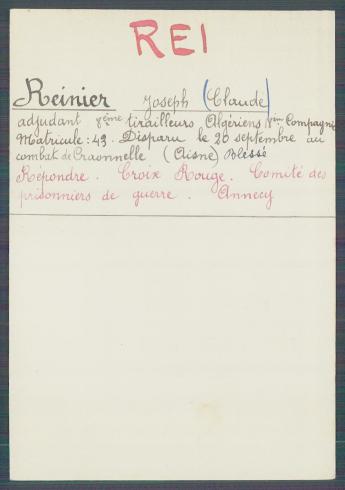 REI
Reinier Joseph (Claude)
adjudant 8ème tirailleurs Algériens Compagnie
Matricule : 43. Disparu le 20 septembre au
combat de Craonnelle (Aisne) Blessé
Répondre. Croix Rouge. Comité des
prisonniers de guerre. Annecy